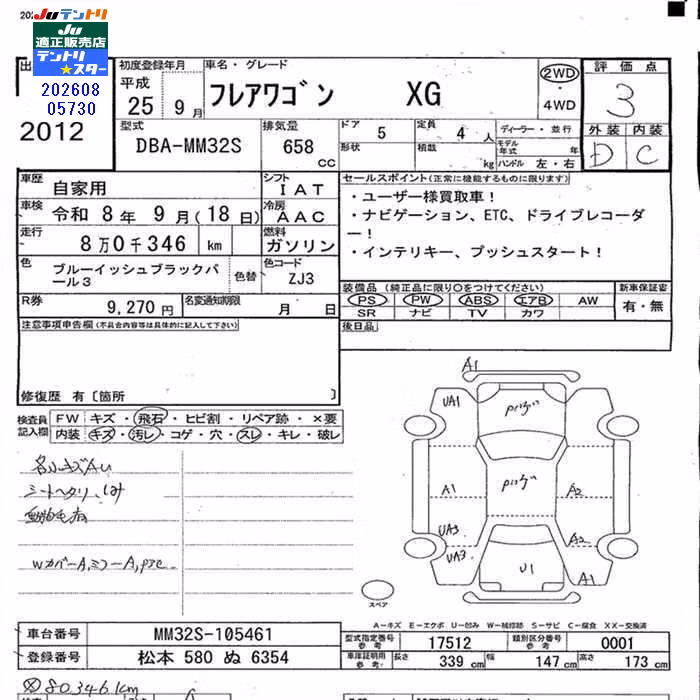 JUテントリ
JU
適正販売店
テントリ
★スター
202608
05730
2012
初度登録年月
平成
25 9月
車名・グレード
フレアワゴン XG
2WD
・
4WD
評価点
3
外装 内装
D C
型式
DBA-MM32S
排気量
658 cc
ドア 5
形状
定員 4 人
積載 kg
ディーラー・並行
モデル年式 年
ハンドル 左・右
車歴 自家用
シフト IAT
車検 令和 8年 9月(18日)
冷房 AAC
走行 8万0千346 km
燃料 ガソリン
色 ブルーイッシュブラックパール3
色替
色コード ZJ3
R券 9,270円
名変通知期限 月 日
セールスポイント(正常に機能するものに限ります)
・ユーザー様買取車!
・ナビゲーション、ETC、ドライブレコーダ
ー!
・インテリキー、プッシュスタート!
装備品(純正品に限り○をつけてください)
PS PW ABS エアB AW
SR ナビ TV カワ
新車保証書
有・無
後日品
注意事項申告欄(不具合内容等は具体的に記入して下さい)
修復歴 有〔箇所 〕
検査員
記入欄
FW キズ・飛石・ヒビ割・リペア跡・×要
内装 キズ・汚レ・コゲ・穴・スレ・キレ・破レ
シートヘタリ
Wカバー A,ミラー A
A1
UA1
A1
A2
UA3
UA3
A2
U1
A1
スペア
A－キズ E－エクボ U－凹み W－補修跡 S－サビ C－腐食 XX－交換済
車台番号 MM32S-105461
登録番号 松本 580 ぬ 6354
型式指定番号
参考
17512
類別区分番号
参考
0001
車庫証明用
参考
長さ 339 cm 幅 147 cm 高さ 173 cm
80,346km